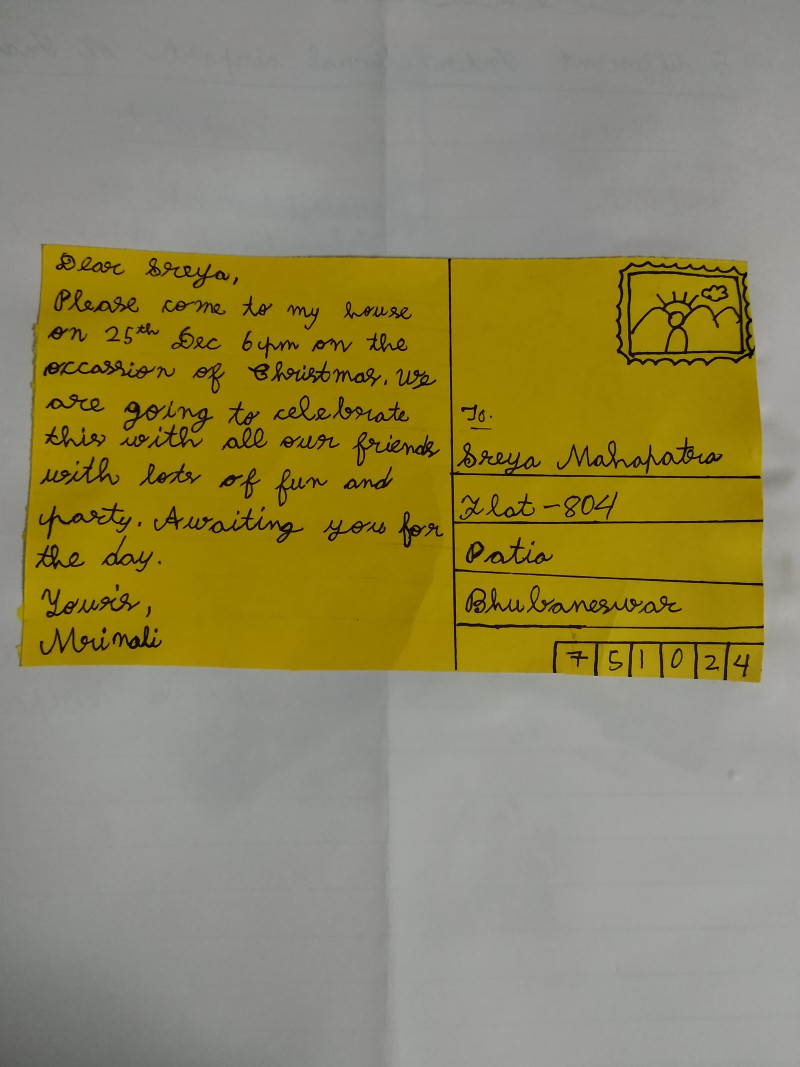 Dear Sreya,
Please come to my house
on 25th Dec 6pm on the
occassion of Christmas. We
are going to celebrate
this with all our friends
with lots of fun and
party. Awaiting you for
the day.
Your's,
Mrinali
To.
Sreya Mahapatra
Flat - 804
Patia
Bhubaneswar
751024